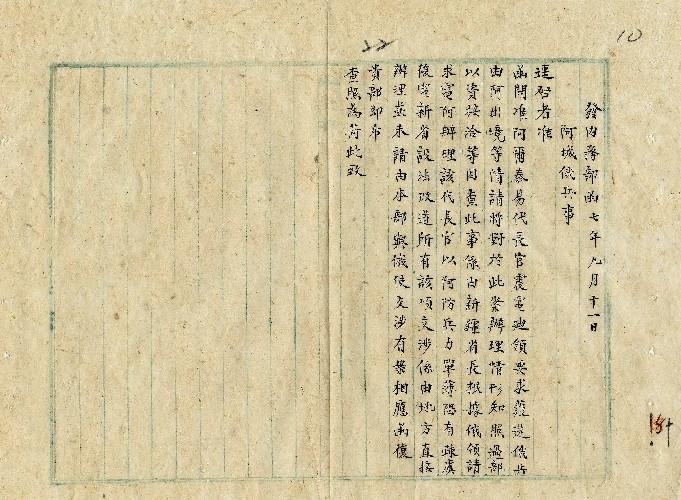 10
發內務部函七年九月十一日
阿城俄兵事
逕啟者准
函開准阿爾泰易代長官震電迪領要求護送俄兵
由阿出境等情請將對於此案辦理情形知照過部
以資接洽等因查此事係由新疆省長根據俄領請
求電阿辦理該代長官以阿防兵力單薄恐有疎虞
復電新省設法改道所有該項交涉係由地方直接
辦理並未請由本部與俄使交涉有案相應函復
貴部即希
查照為荷此致